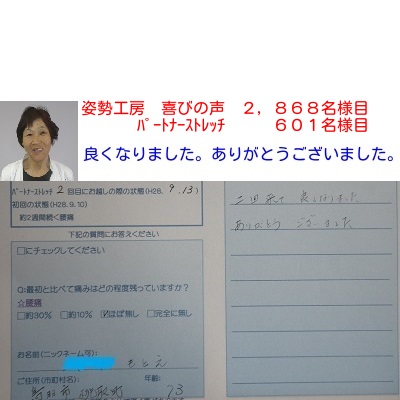 姿勢工房 喜びの声 2,868名様目
ﾊﾟｰﾄﾅｰｽﾄﾚｯﾁ 601名様目
良くなりました。ありがとうございました。
ﾊﾟｰﾄﾅｰｽﾄﾚｯﾁ 2 回目にお越しの際の状態(H28. 9.13)
初回の状態(H28.9.10)
約2週間続く腰痛
下記の質問にお答えください
□にチェックしてください
Q:最初と比べて痛みはどの程度残っていますか?
☆腰痛
□約30% □約10% ☑ほぼ無し □完全に無し
お名前(ニックネーム可):
もとえ
ご住所(市町村名): 年齢:
73
二回来て 良くなりました
ありがとう ございました